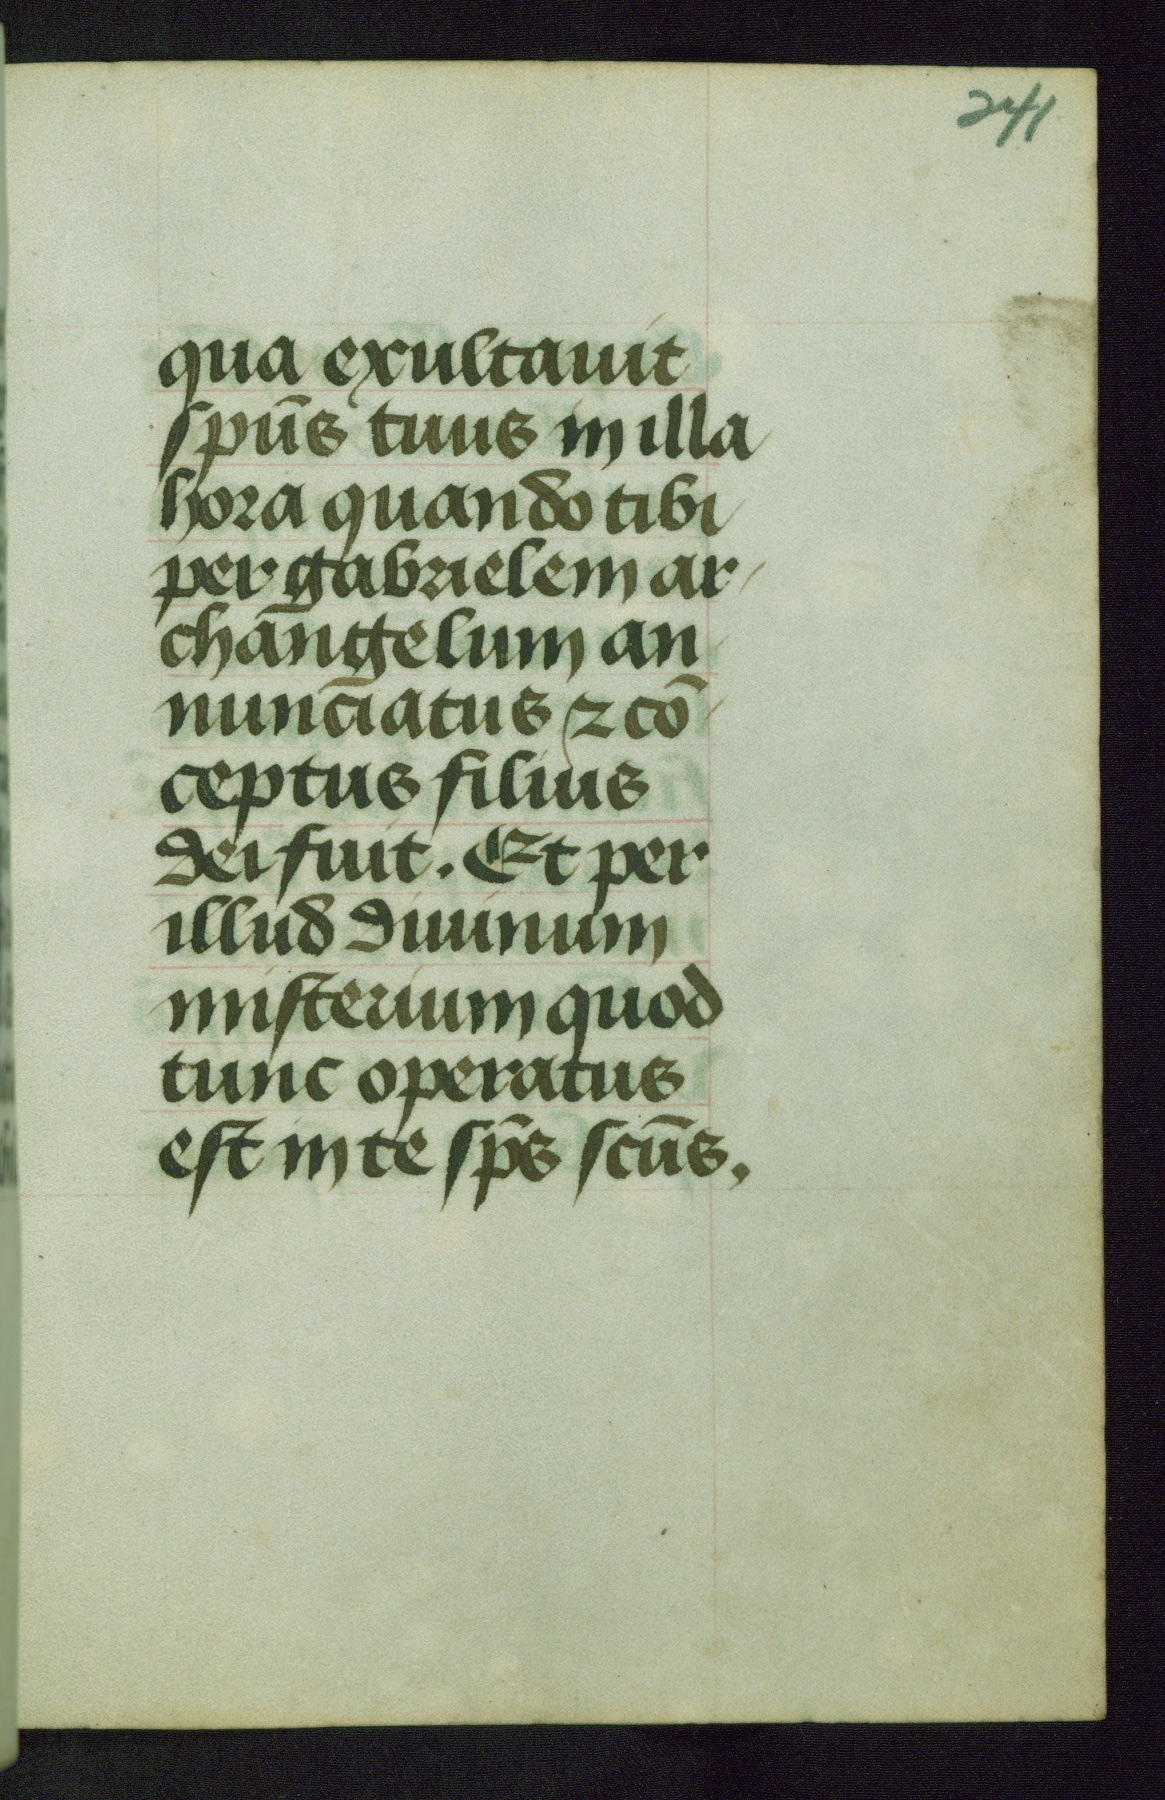 241
qua exultauit
spūs tuus in illa
hora quando tibi
per gabrielem ar-
changelum an
nunciatus ⁊ cō-
ceptus filius
dei fuit. Et per
illud diuinum
misterium quod
tunc operatus
est in te sp̄s scūs.